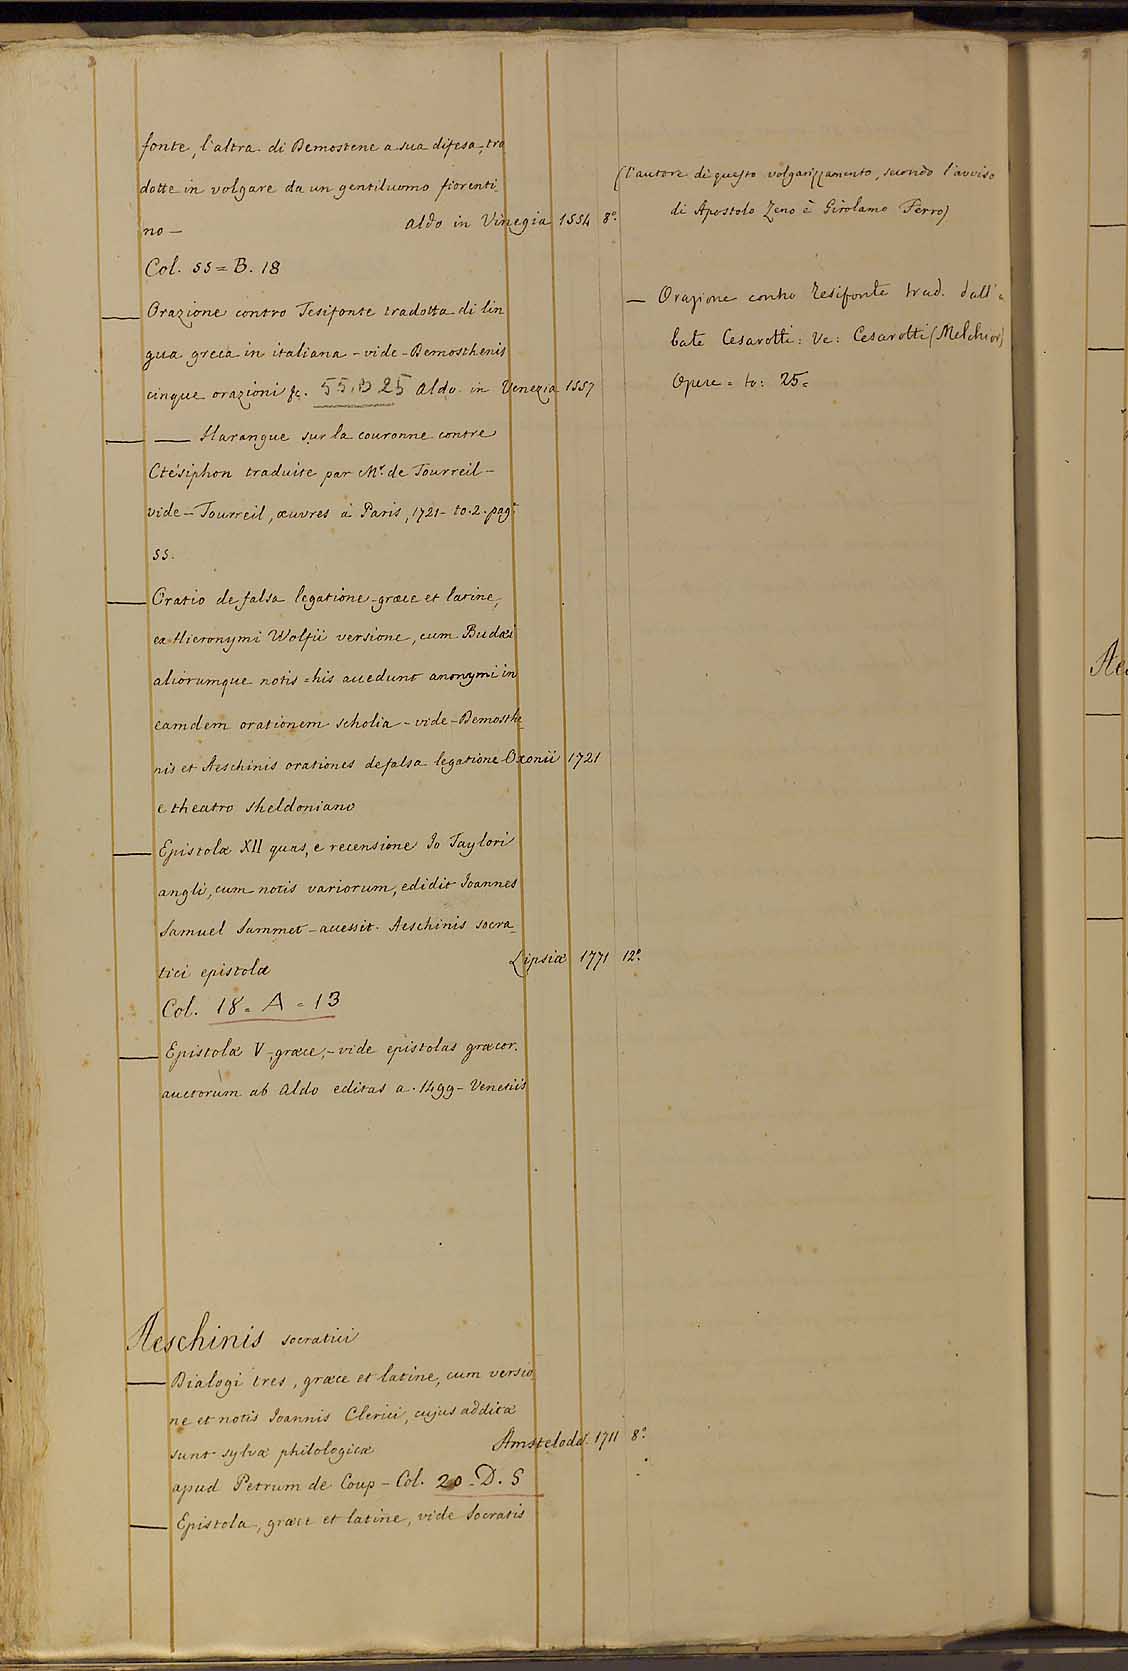 fonte, l'altra di Demostene a sua difesa, tra
dotte in volgare da un gentiluomo fiorenti
no — Aldo in Vinegia 1554 8°.
Col. 55 = B. 18
Orazione contro Tesifonte tradotta di lin
gua greca in italiana - vide - Demosthenis
cinque orazioni &c. 55. B 25 Aldo in Venezia 1557
— Harangue sur la couronne contre
Ctésiphon traduite par Mr. de Tourreil -
vide - Tourreil, œuvres à Paris, 1721 - to. 2. pag.
55.
Oratio de falsa legatione - græce et latine,
ex Hieronymi Wolfii versione, cum Budæi
aliorumque notis = his accedunt anonymi in
eamdem orationem scholia - vide - Demosthe_
nis et Aeschinis orationes de falsa legatione Oxonii 1721
e theatro sheldoniano
Epistolæ XII quas, e recensione Io Taylori
angli, cum notis variorum, edidit Ioannes
Samuel Sammet - accessit. Aeschinis socra_
tici epistolæ Lipsiæ 1771 12°.
Col. 18 = A = 13
Epistolæ V - græce, - vide epistolas græcor.
auctorum ab Aldo editas a. 1499 - Venetiis
Aeschinis socratici
Dialogi tres, græce et latine, cum versio
ne et notis Ioannis Clerici, cujus additæ
sunt sylvæ philologicæ Amstelodi. 1711 8°.
apud Petrum de Coup - Col. 20 - D. 5
Epistola, græce et latine, vide Socratis
(l'autore di questo volgarizzamento, secondo l'avviso
di Apostolo Zeno è Girolamo Ferro)
— Orazione contro Tesifonte trad. dall'a
bate Cesarotti: Ve: Cesarotti (Melchior)
Opere = to: 25 =
Ae